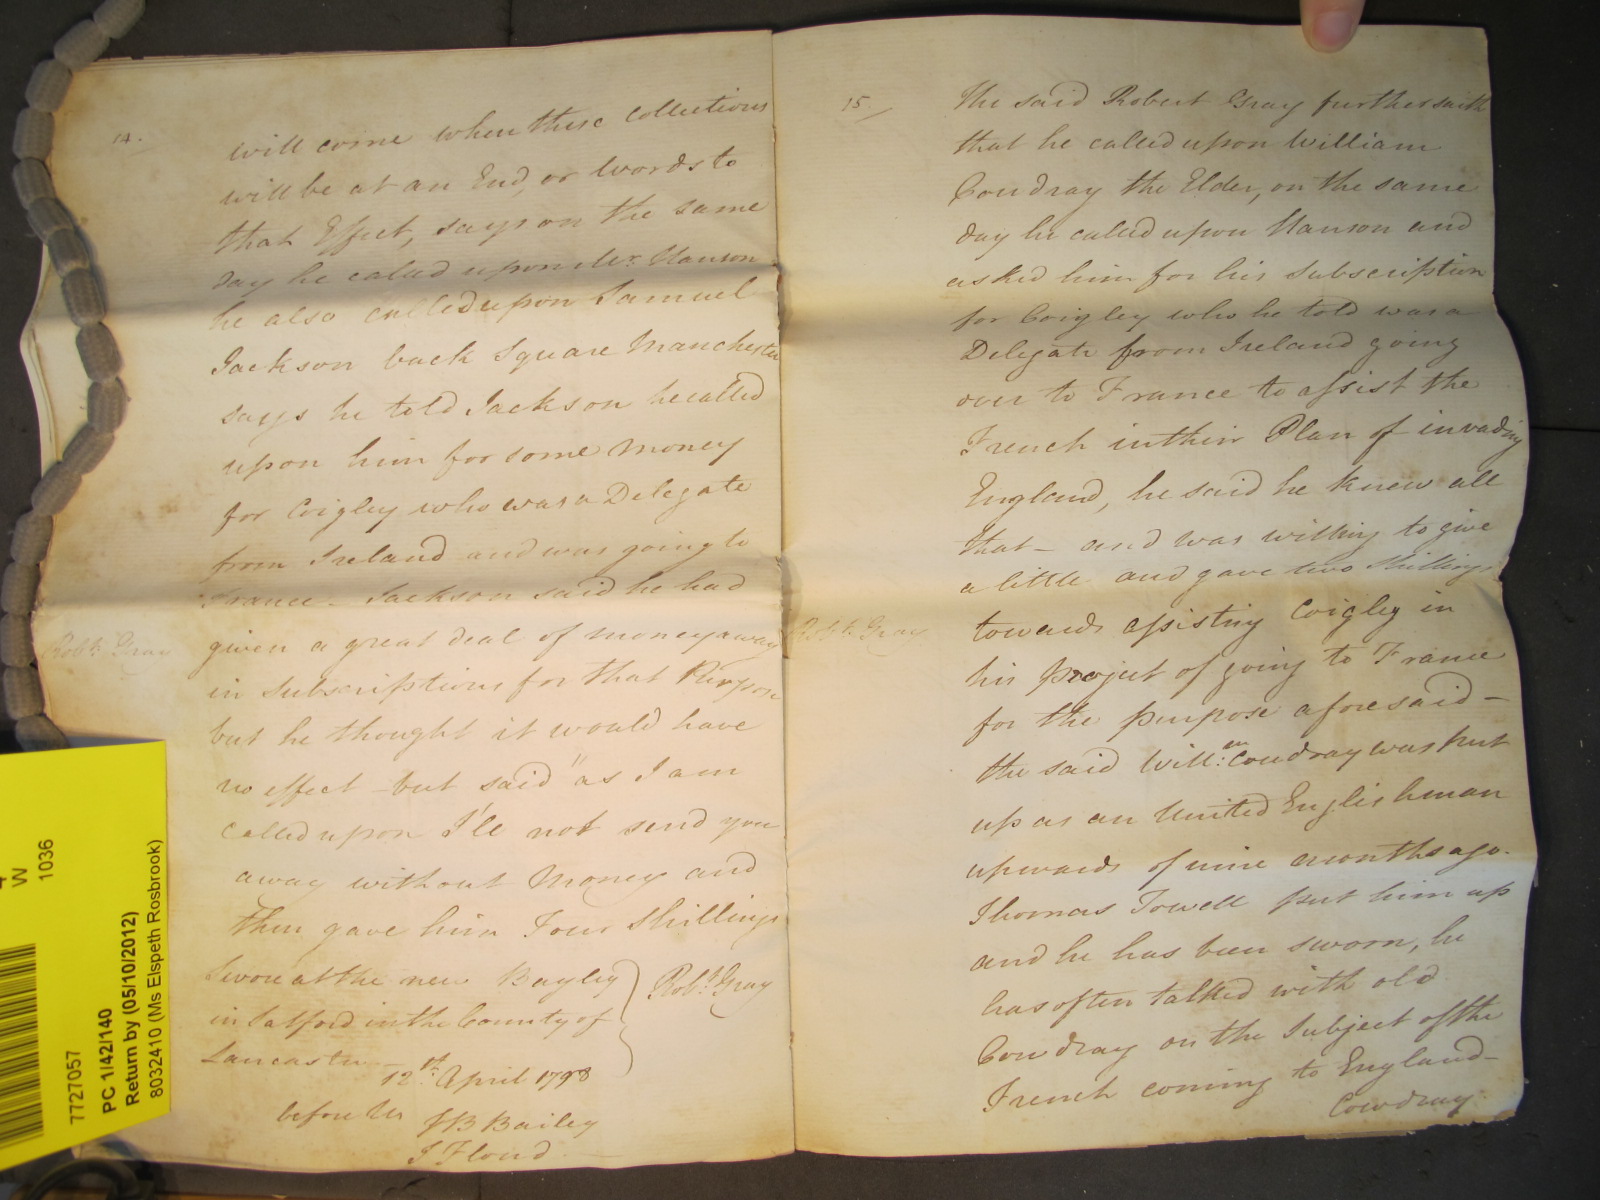 14.
will come when these Collections
will be at an End, or Words to
that Effect, says on the same
day he called upon Mr. Hanson
he also called upon Samuel
Jackson back Square Manchester
says he told Jackson he called
upon him for some Money
for Coigley who was a Delegate
from Ireland and was going to
France - Jackson said he had
given a great deal of money away
in Subscriptions for that Purpose
but he thought it would have
no effect - but said "as I am
called upon I'le not send you
away without Money and
then gave him Four Shillings
Robt. Gray
Sworn at the new Bayley
in Salford in the County of
Lancaster 12th. April 1798
before Us
Robt. Gray
JB Bailey
J Floud
15.
The said Robert Gray further saith
that he called upon William
Cowdray the Elder, on the same
day he called upon Hanson and
asked him for his Subscription
for Coigley who he told was a
Delegate from Ireland going
over to France to assist the
French in their Plan of invading
England, he said he knew all
that - and was willing to give
a little and gave two Shillings
towards assisting Coigley in
his project of going to France
for the purpose aforesaid -
the said Willm: Cowdray was put
up as an United Englishman
upwards of nine months ago.
Thomas Towell put him up
and he has been sworn, he
has often talked with old
Cowdray on the Subject of the
French coming to England -
Cowdray
Robt. Gray
W
1036
7727057
PC 1/42/140
Return by (05/10/2012)
8032410 (Ms Elspeth Rosbrook)